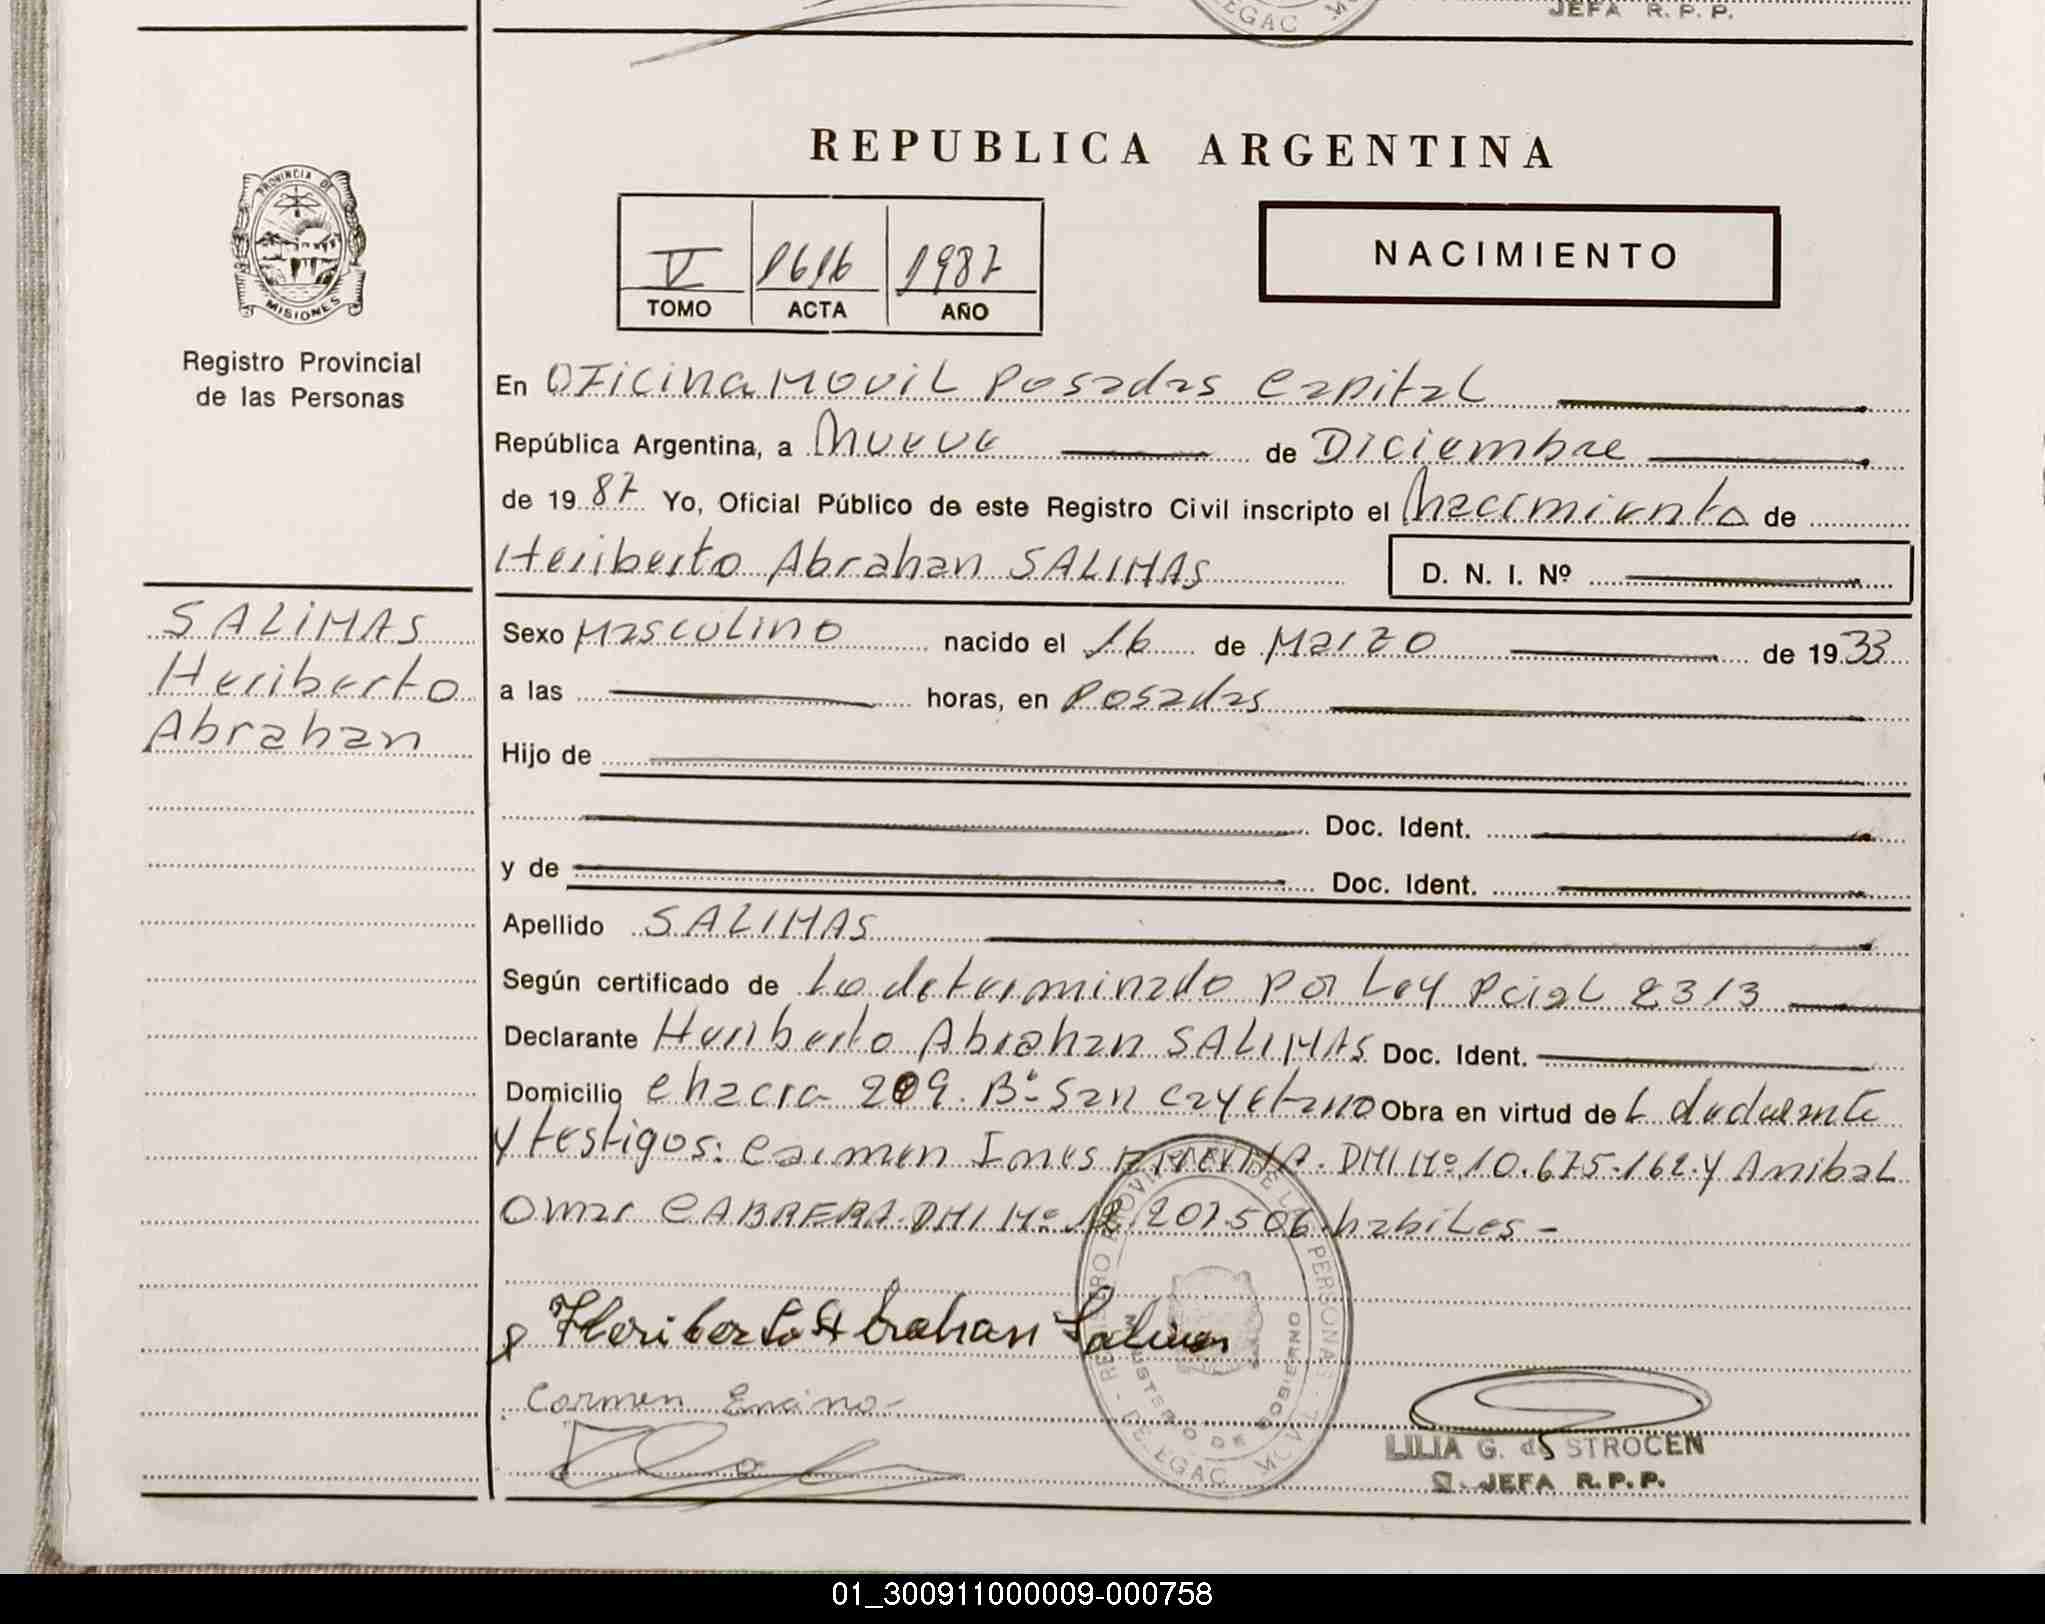 JEFA R. P. P.
REPUBLICA ARGENTINA
PROVINCIA DE
MISIONES
Registro Provincial
de las Personas
V 1616 1987
TOMO ACTA AÑO
NACIMIENTO
En Oficina Movil Posadas Capital
República Argentina, a Nueve de Diciembre
de 1987 Yo, Oficial Público de este Registro Civil inscripto el Nacimiento de
Heriberto Abrahan SALINAS D. N. I. Nº
SALINAS
Heriberto
Abrahan
Sexo Masculino nacido el 16 de Marzo de 1933
a las horas, en Posadas
Hijo de
Doc. Ident.
y de Doc. Ident.
Apellido SALINAS
Según certificado de Lo determinado por Ley Pcial 2313
Declarante Heriberto Abrahan SALINAS Doc. Ident.
Domicilio Chacra 209. Bº San Cayetano Obra en virtud de
y testigos: Carmen Ines DNI Nº 10.675.162 y Anibal
Omar CABRERA DNI Nº 12.207.506 habiles -
Heriberto Abrahan Salinas
Carmen Encina
REGISTRO PROVINCIAL DE LAS PERSONAS
MINISTERIO DE GOBIERNO
LILIA G. de STROCEN
JEFA R. P. P.
01_300911000009-000758